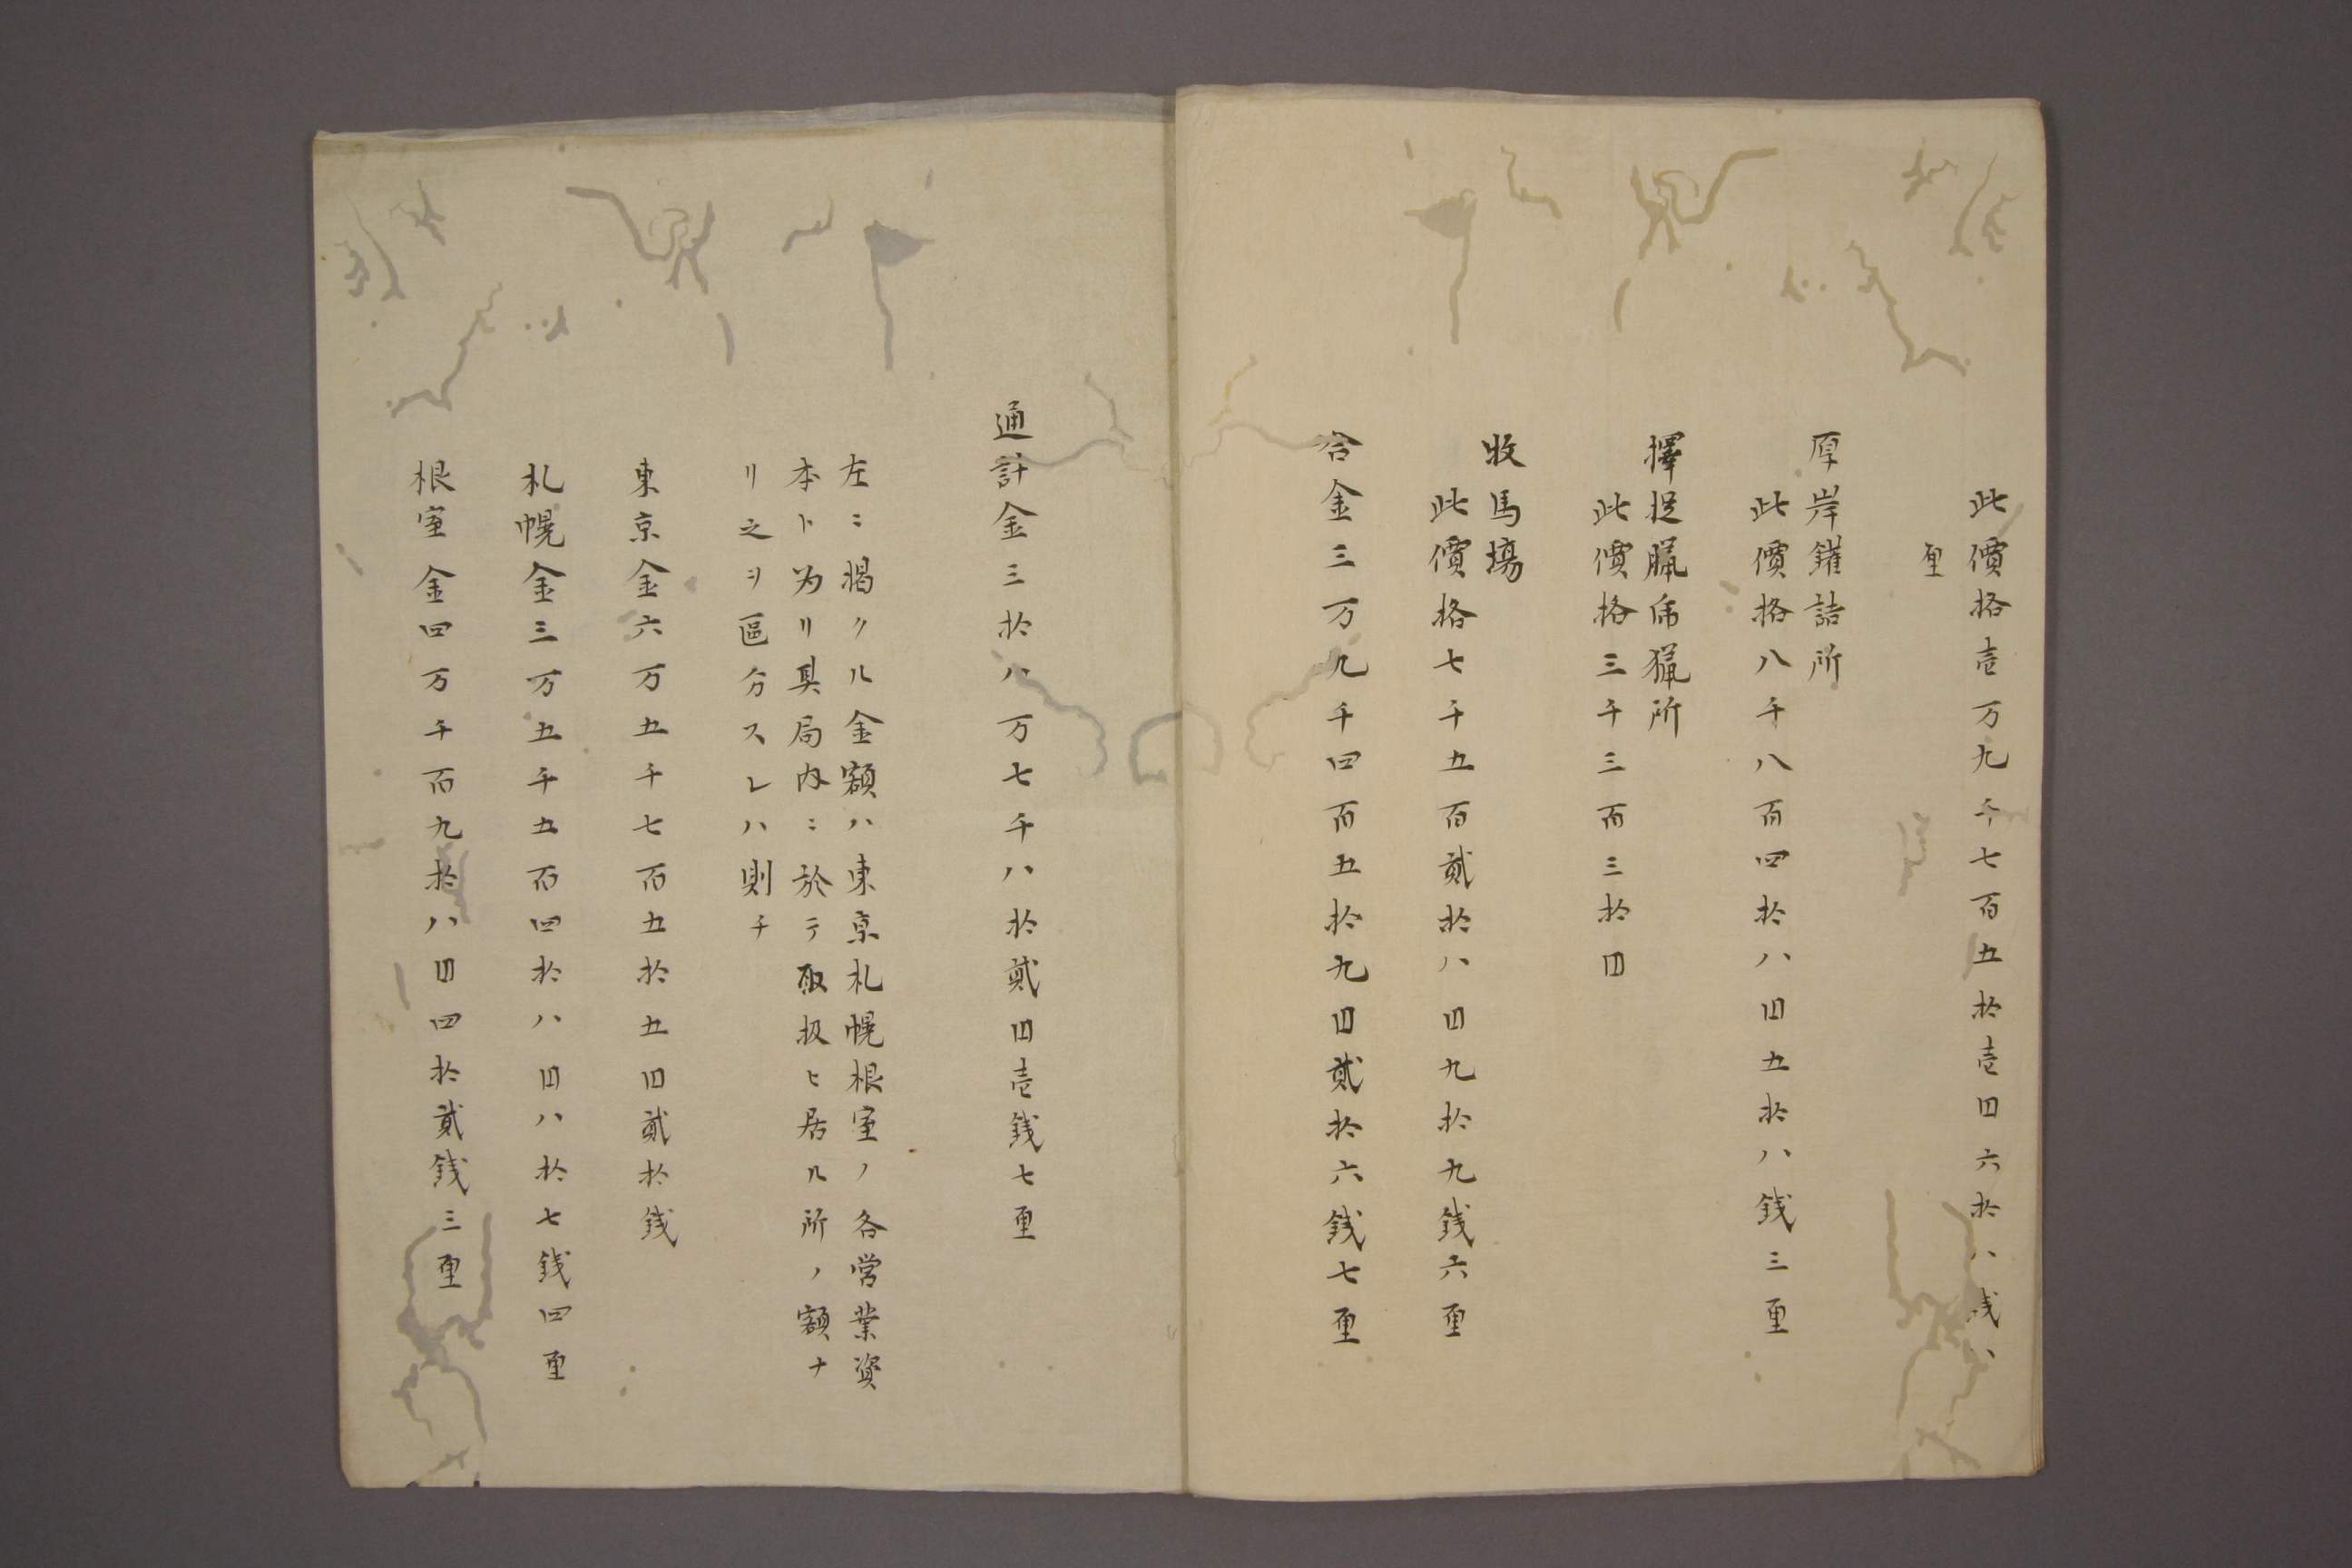 此價格壱万九千七百五拾壱円六拾八銭八
厘
厚岸鑵詰所
此價格八千八百四拾八円五拾八銭三厘
擇捉臘虎猟所
此價格三千三百三拾円
牧馬場
此價格七千五百貳拾八円九拾九銭六厘
合金三万九千四百五拾九円貳拾六銭七厘
通計金三拾八万七千八拾貳円壱銭七厘
左ニ掲クル金額ハ東京札幌根室ノ各営業資
本ト为リ其局内ニ於テ取扱ヒ居ル所ノ額ナ
リ之ヲ區分スレハ則チ
東京金六万五千七百五拾五円貳拾銭
札幌金三万五千五百四拾八円八拾七銭四厘
根室金四万千百九拾八円四拾貳銭三厘